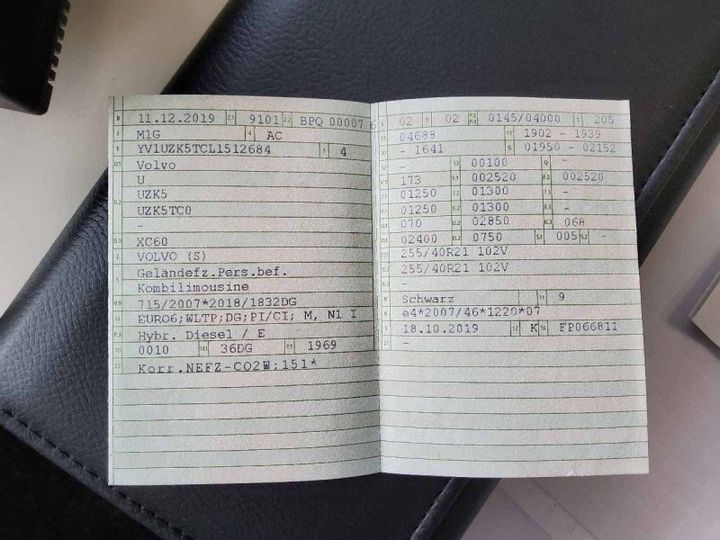 B 11.12.2019 2.1 9101 2.2 BPQ 00007 6
J M1G 4 AC
E YV1UZK5TCL1512684 3 4
D.1 Volvo
U
D.2 UZK5
UZK5TC0
-
D.3 XC60
2 VOLVO (S)
5 Geländefz.Pers.bef.
Kombilimousine
V.9 715/2007*2018/1832DG
14 EURO6;WLTP;DG;PI/CI; M, N1 I
P.3 Hybr. Diesel / E
10 0010 14.1 36DG P.1 1969
22 Korr.NEFZ-CO2W:151*
L 02 9 02 P.2 P.4 0145/04000 T 205
18 04688 19 1902 - 1939
20 - 1641 G 01950 - 02152
12 - 13 00100 Q -
V.7 173 F.1 002520 F.2 002520
7.1 01250 7.2 01300 7.3 -
8.1 01250 8.2 01300 8.3 -
U.1 070 U.2 02850 U.3 068
O.1 02400 O.2 0750 S.1 005 S.2 -
15.1 255/40R21 102V
15.2 255/40R21 102V
15.3 -
R Schwarz 11 9
K e4*2007/46*1220*07
6 18.10.2019 17 K 16 FP066811
21 -